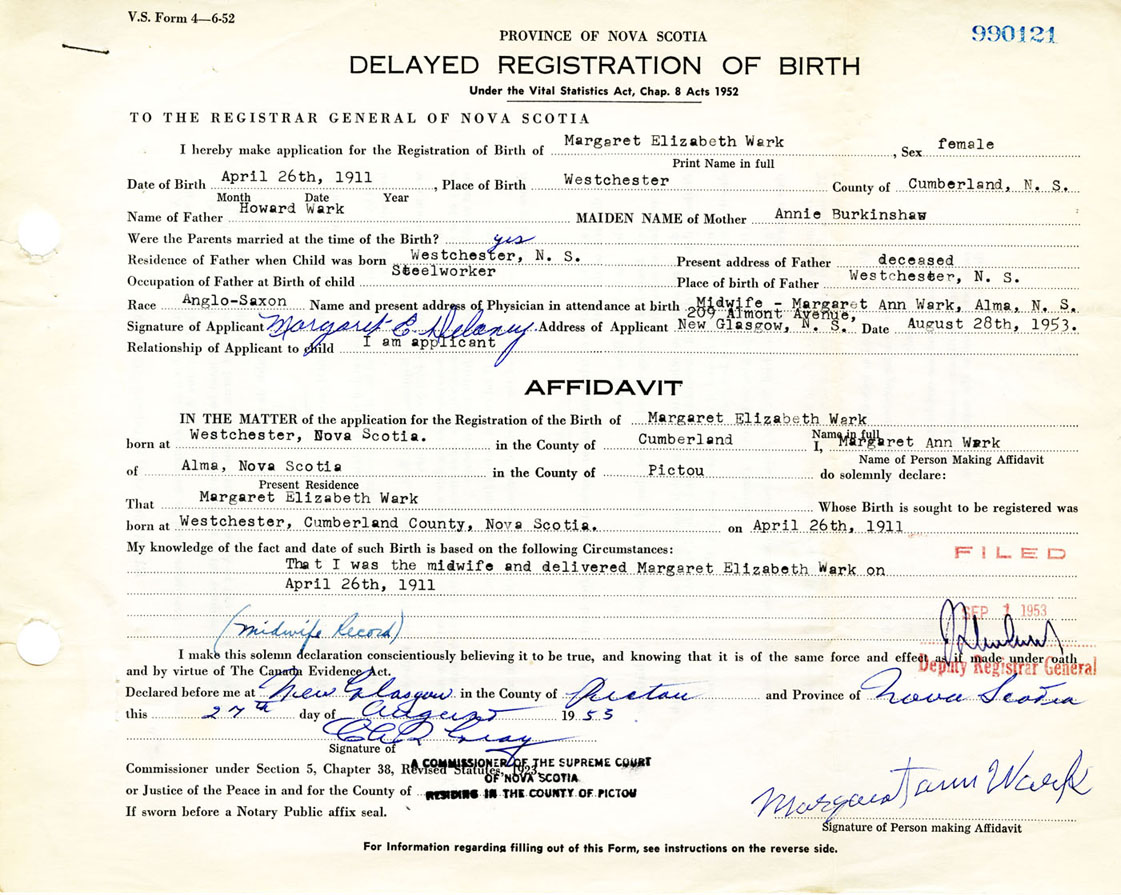 V.S. Form 4—6-52
990121
PROVINCE OF NOVA SCOTIA
DELAYED REGISTRATION OF BIRTH
Under the Vital Statistics Act, Chap. 8 Acts 1952
TO THE REGISTRAR GENERAL OF NOVA SCOTIA
I hereby make application for the Registration of Birth of Margaret Elizabeth Wark, Sex female
Print Name in full
Date of Birth April 26th, 1911, Place of Birth Westchester County of Cumberland, N. S.
Month Date Year
Name of Father Howard Wark MAIDEN NAME of Mother Annie Burkinshaw
Were the Parents married at the time of the Birth? yes
Residence of Father when Child was born Westchester, N. S. Present address of Father deceased
Occupation of Father at Birth of child Steelworker Place of birth of Father Westchester, N. S.
Race Anglo-Saxon Name and present address of Physician in attendance at birth Midwife - Margaret Ann Wark, Alma, N. S.
209 Almont Avenue,
Signature of Applicant Margaret E. Delaney Address of Applicant New Glasgow, N. S. Date August 28th, 1953.
Relationship of Applicant to child I am applicant
AFFIDAVIT
IN THE MATTER of the application for the Registration of the Birth of Margaret Elizabeth Wark
Name in full
born at Westchester, Nova Scotia. in the County of Cumberland I, Margaret Ann Wark
Name of Person Making Affidavit
of Alma, Nova Scotia in the County of Pictou do solemnly declare:
Present Residence
That Margaret Elizabeth Wark Whose Birth is sought to be registered was
born at Westchester, Cumberland County, Nova Scotia. on April 26th, 1911
My knowledge of the fact and date of such Birth is based on the following Circumstances:
FILED
That I was the midwife and delivered Margaret Elizabeth Wark on
April 26th, 1911
SEP 1 1953
(midwife Record)
I make this solemn declaration conscientiously believing it to be true, and knowing that it is of the same force and effect as if made under oath
Deputy Registrar General
and by virtue of The Canada Evidence Act.
Declared before me at New Glasgow in the County of Pictou and Province of Nova Scotia
this 27th day of August 1953
Gray
Signature of
A COMMISSIONER OF THE SUPREME COURT
Commissioner under Section 5, Chapter 38, Revised Statutes, 1923,
OF NOVA SCOTIA
or Justice of the Peace in and for the County of RESIDING IN THE COUNTY OF PICTOU
If sworn before a Notary Public affix seal.
Margaret ann Wark
Signature of Person making Affidavit
For Information regarding filling out of this Form, see instructions on the reverse side.